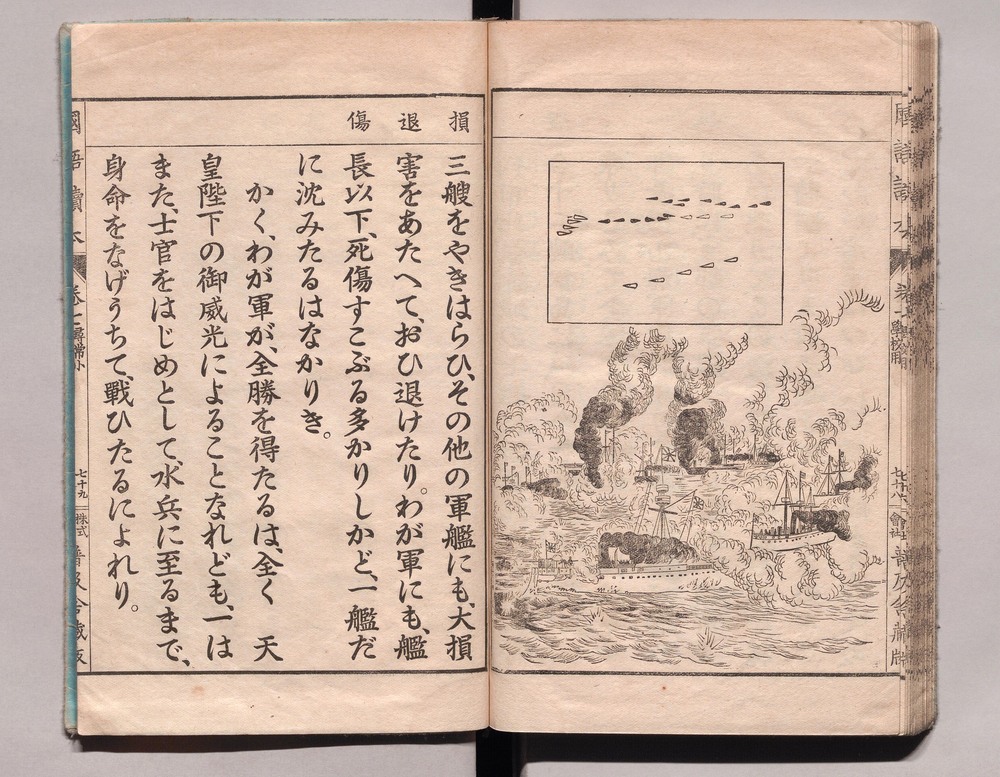 損
退
傷
三艘をやきはらひ、その他の軍艦にも、大損
害をあたへて、おひ退けたり。わが軍にも、艦
長以下、死傷すこぶる多かりしかど、一艦だ
に沈みたるはなかりき。
かく、わが軍が、全勝を得たるは、全く 天
皇陛下の御威光によることなれども、一は
また、士官をはじめとして、水兵に至るまで、
身命をなげうちて、戰ひたるによれり。
七十九